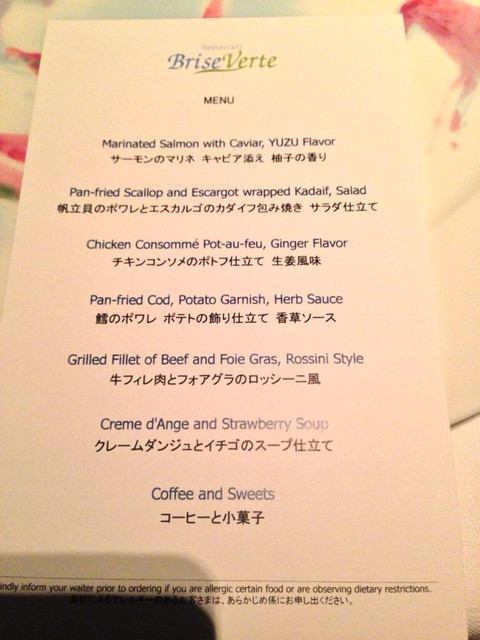 Restaurant
BriseVerte
MENU
Marinated Salmon with Caviar, YUZU Flavor
サーモンのマリネ キャビア添え 柚子の香り
Pan-fried Scallop and Escargot wrapped Kadaif, Salad
帆立貝のポワレとエスカルゴのカダイフ包み焼き サラダ仕立て
Chicken Consommé Pot-au-feu, Ginger Flavor
チキンコンソメのポトフ仕立て 生姜風味
Pan-fried Cod, Potato Garnish, Herb Sauce
鱈のポワレ ポテトの飾り仕立て 香草ソース
Grilled Fillet of Beef and Foie Gras, Rossini Style
牛フィレ肉とフォアグラのロッシーニ風
Creme d'Ange and Strawberry Soup
クレームダンジュとイチゴのスープ仕立て
Coffee and Sweets
コーヒーと小菓子
indly inform your waiter prior to ordering if you are allergic certain food or are observing dietary restrictions.
食材によるアレルギーのあるお客さまは、あらかじめ係にお申し出ください。